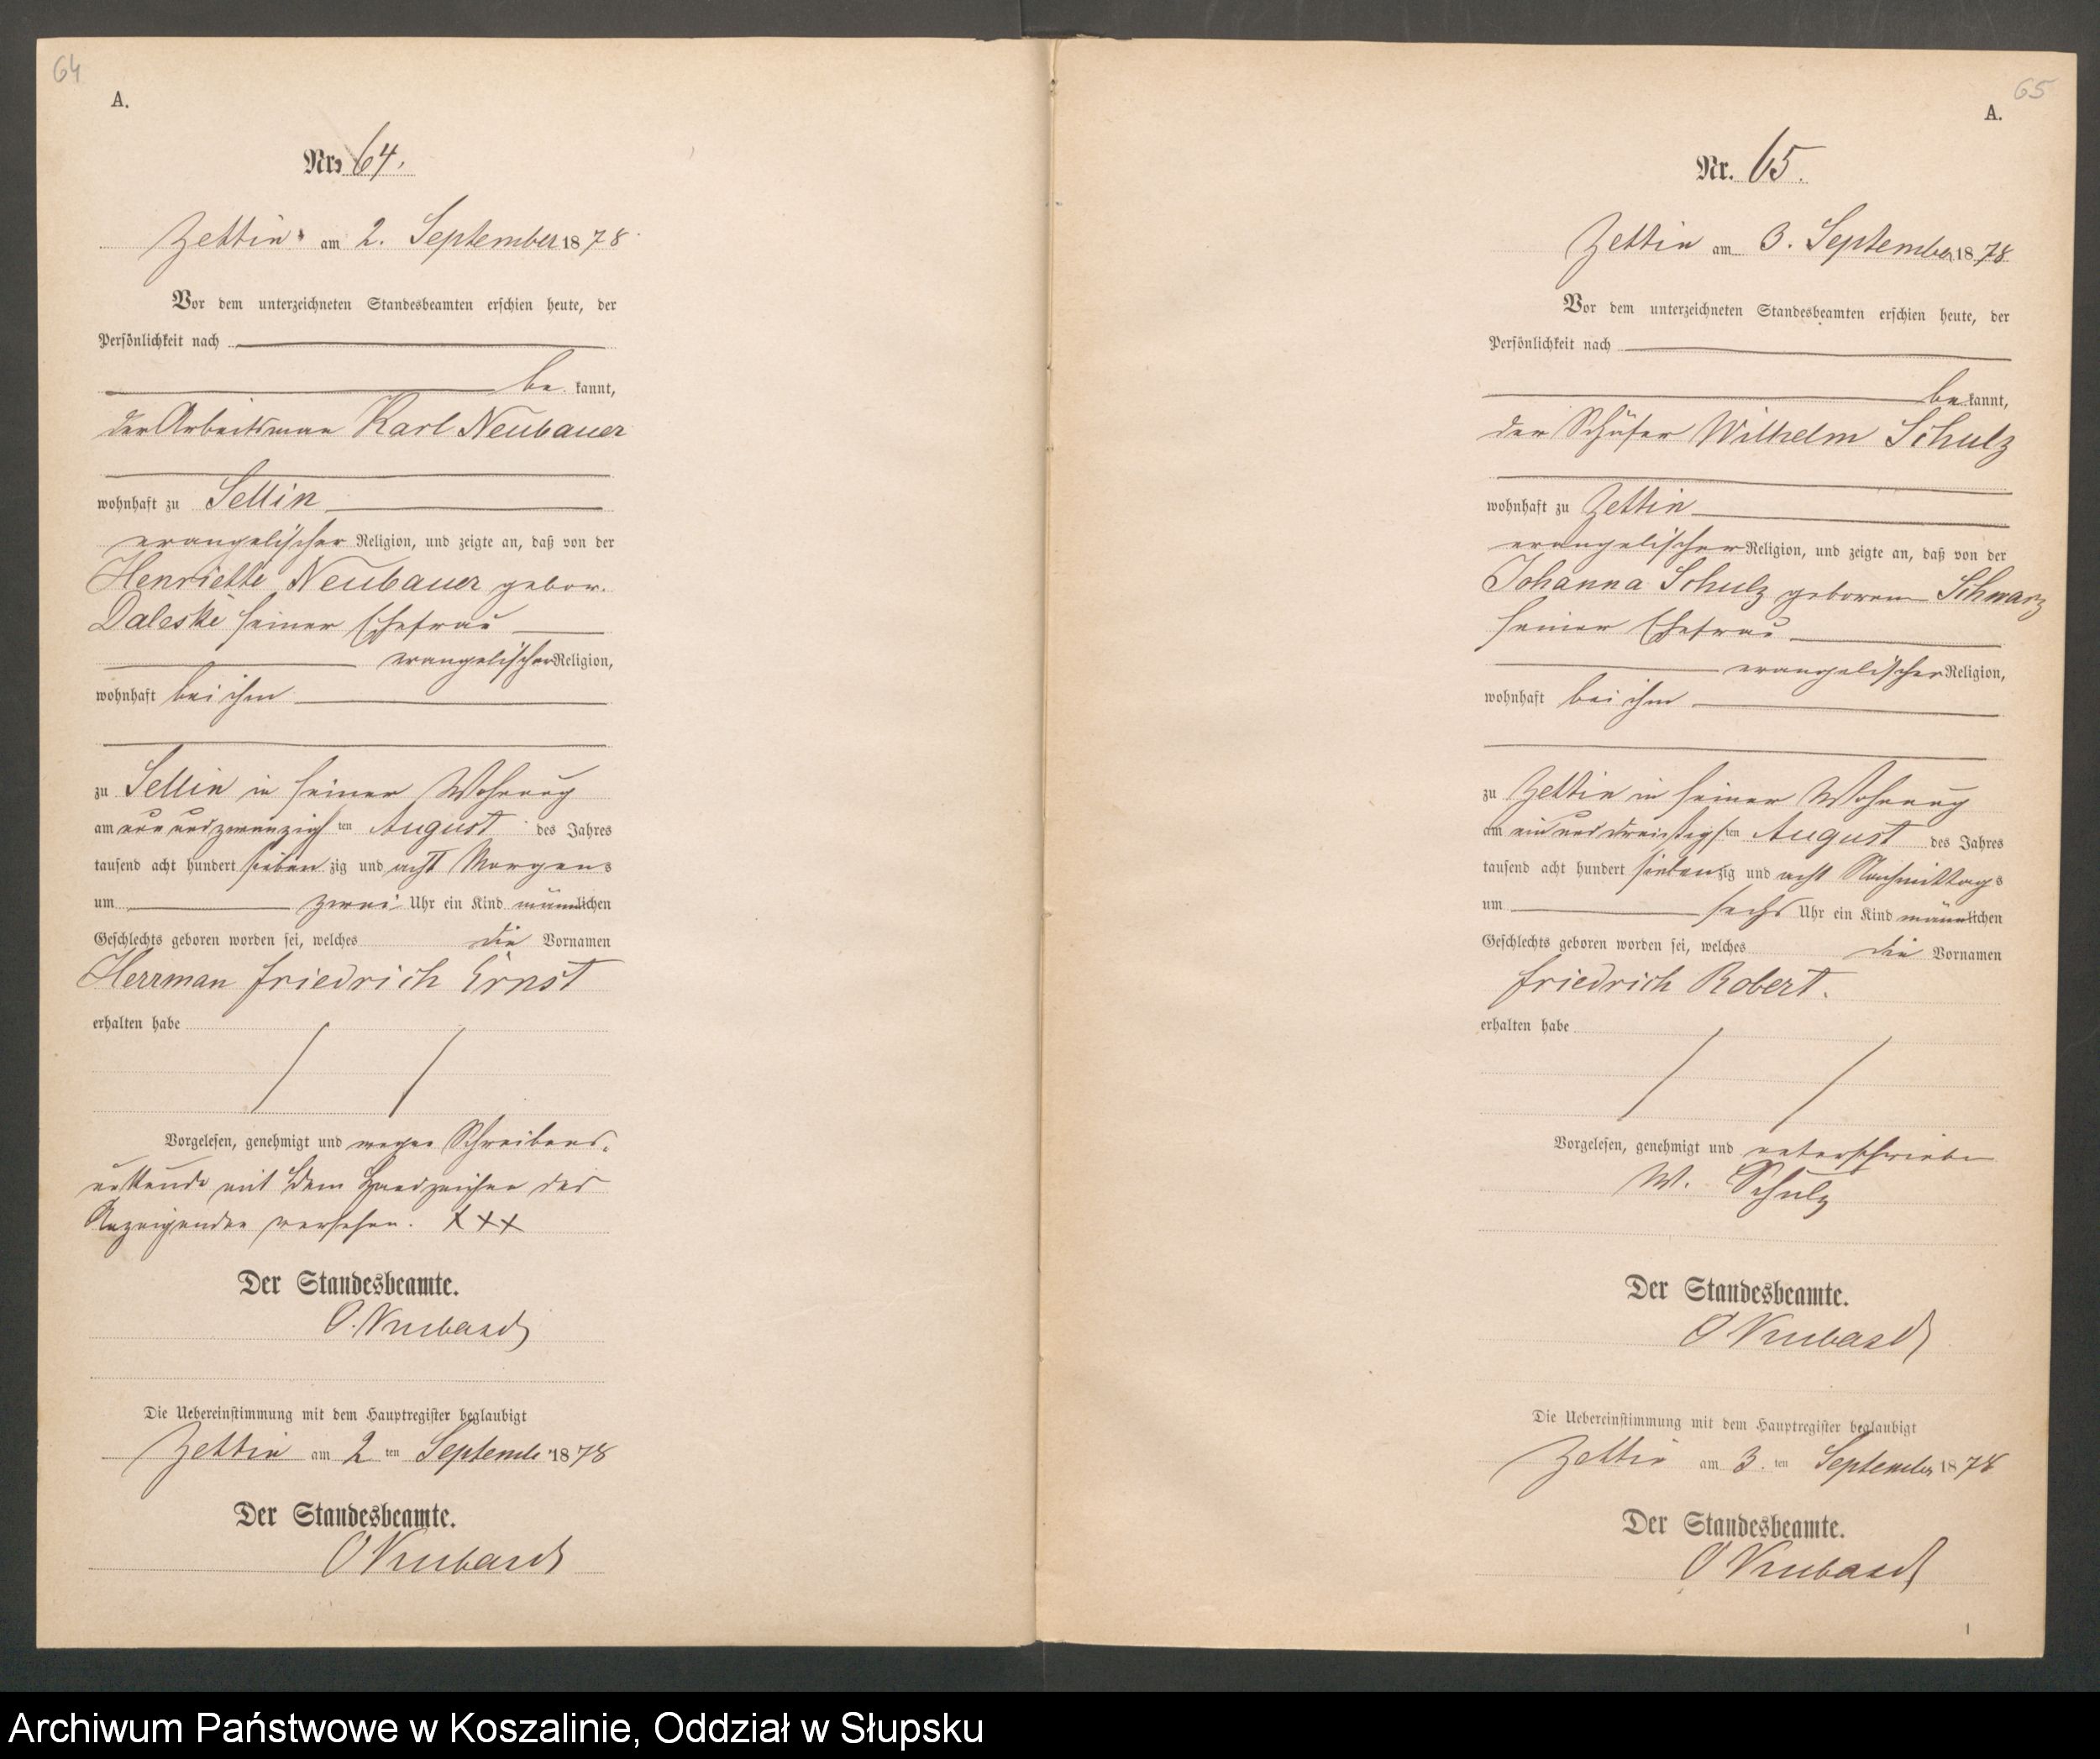 64
A.
Nr. 64.
Zettin am 2. September 1878
Vor dem unterzeichneten Standesbeamten erschien heute, der
Persönlichkeit nach
be kannt,
der Arbeitsman Karl Neubauer
wohnhaft zu Sellin
evangelischer Religion, und zeigte an, daß von der
Henriette Neubauer gebor.
Daleske seiner Ehefrau
evangelischer Religion,
wohnhaft bei ihm
zu Sellin in seiner Wohnung
am neun und zwanzigsten August des Jahres
tausend acht hundert sieben zig und acht Morgens
um zwei Uhr ein Kind männlichen
Geschlechts geboren worden sei, welches die Vornamen
Herrman Friedrich Ernst
erhalten habe
Vorgelesen, genehmigt und wegen Schreibens-
unkunde mit dem Handzeichen des
Anzeigenden versehen. XXX
Der Standesbeamte.
Die Uebereinstimmung mit dem Hauptregister beglaubigt
Zettin am 2 ten September 1878
Der Standesbeamte.
65
A.
Nr. 65.
Zettin am 3. September 1878
Vor dem unterzeichneten Standesbeamten erschien heute, der
Persönlichkeit nach
be kannt,
der Schäfer Wilhelm Schulz
wohnhaft zu Zettin
evangelischer Religion, und zeigte an, daß von der
Johanna Schulz geborene Schwarz
seiner Ehefrau
evangelischer Religion,
wohnhaft bei ihm
zu Zettin in seiner Wohnung
am ein und dreißigsten August des Jahres
tausend acht hundert siebenzig und acht Nachmittags
um sechs Uhr ein Kind männlichen
Geschlechts geboren worden sei, welches die Vornamen
Friedrich Robert.
erhalten habe
Vorgelesen, genehmigt und unterschrieben
W. Schulz
Der Standesbeamte.
Die Uebereinstimmung mit dem Hauptregister beglaubigt
Zettin am 3. ten September 1878
Der Standesbeamte.
Archiwum Państwowe w Koszalinie, Oddział w Słupsku